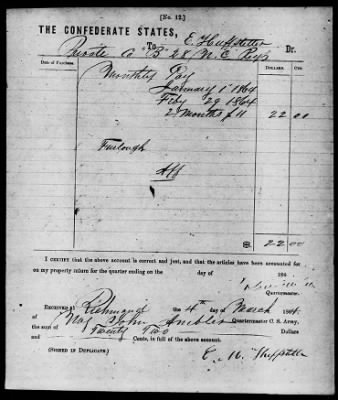 [No. 12.]
THE CONFEDERATE STATES,
To E. Huffstetler Dr.
Private Co "B" 28 N. C. Regt
Date of Purchase. Dollars. Cts.
Monthly Pay
January 1st 1864
Feby 29 1864
2 months $11 22 00
Furlough
22 00
I CERTIFY that the above account is correct and just, and that the articles have been accounted for
on my property return for the quarter ending on the day of 186
Quartermaster.
RECEIVED AT Richmond the 4th of March 1864.
of Maj John Ambler Quartermaster C. S. Army,
the sum of Twenty Two Dollars
and Cents, in full of the above account.
(SIGNED IN DUPLICATE.) E. M. Huffstetler